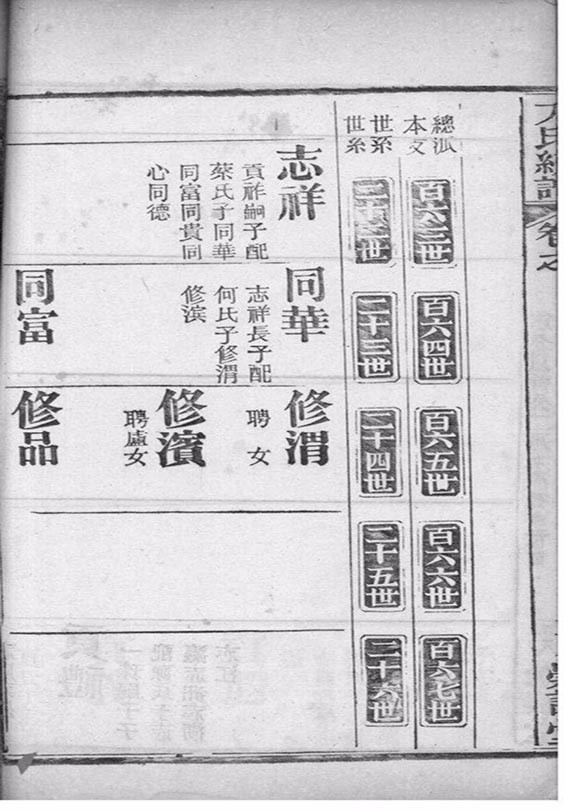 方氏續譜 卷之
總派
百六三世
百六四世
百六五世
百六六世
百六七世
本支
世系
世系
二十二世
二十三世
二十四世
二十五世
二十六世
志祥
貢祚嗣子配
蔡氏子同華
同富同貴同
心同德
同華
志祥長子配
何氏子修渭
修濱
同富
修渭
聘 女
修濱
聘盧女
修品